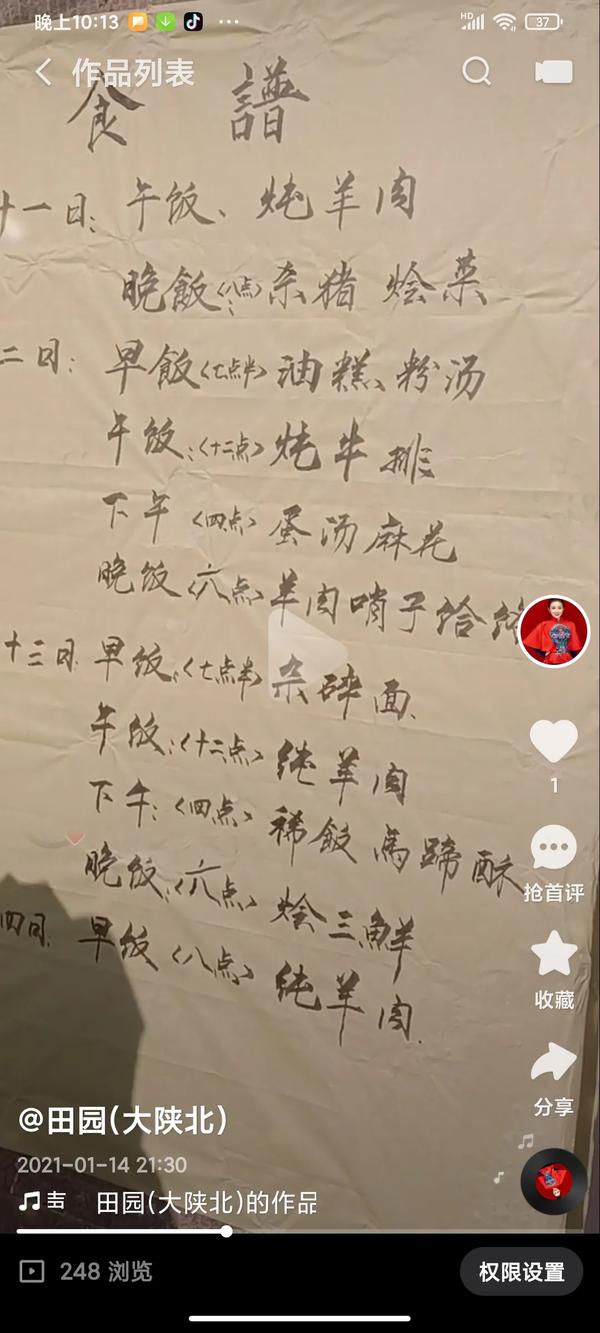 晚上10:13
HD
37
作品列表
食 譜
十一日：午饭、炖羊肉
晚飯〈八点〉杀猪 烩菜
二日：早飯〈七点半〉油糕、粉汤
午饭：〈十二点〉炖牛排
下午〈四点〉蛋汤麻花
晚饭〈六点〉羊肉哨子饸
十三日 早饭〈七点半〉杂碎面
午饭：〈十二点〉炖羊肉
下午：〈四点〉稀飯 馬蹄酥
晚饭：〈六点〉烩三鲜
四日 早饭〈八点〉炖羊肉
1
抢首评
收藏
分享
@田园(大陕北)
2021-01-14 21:30
田园(大陕北)的作品
248 浏览
权限设置